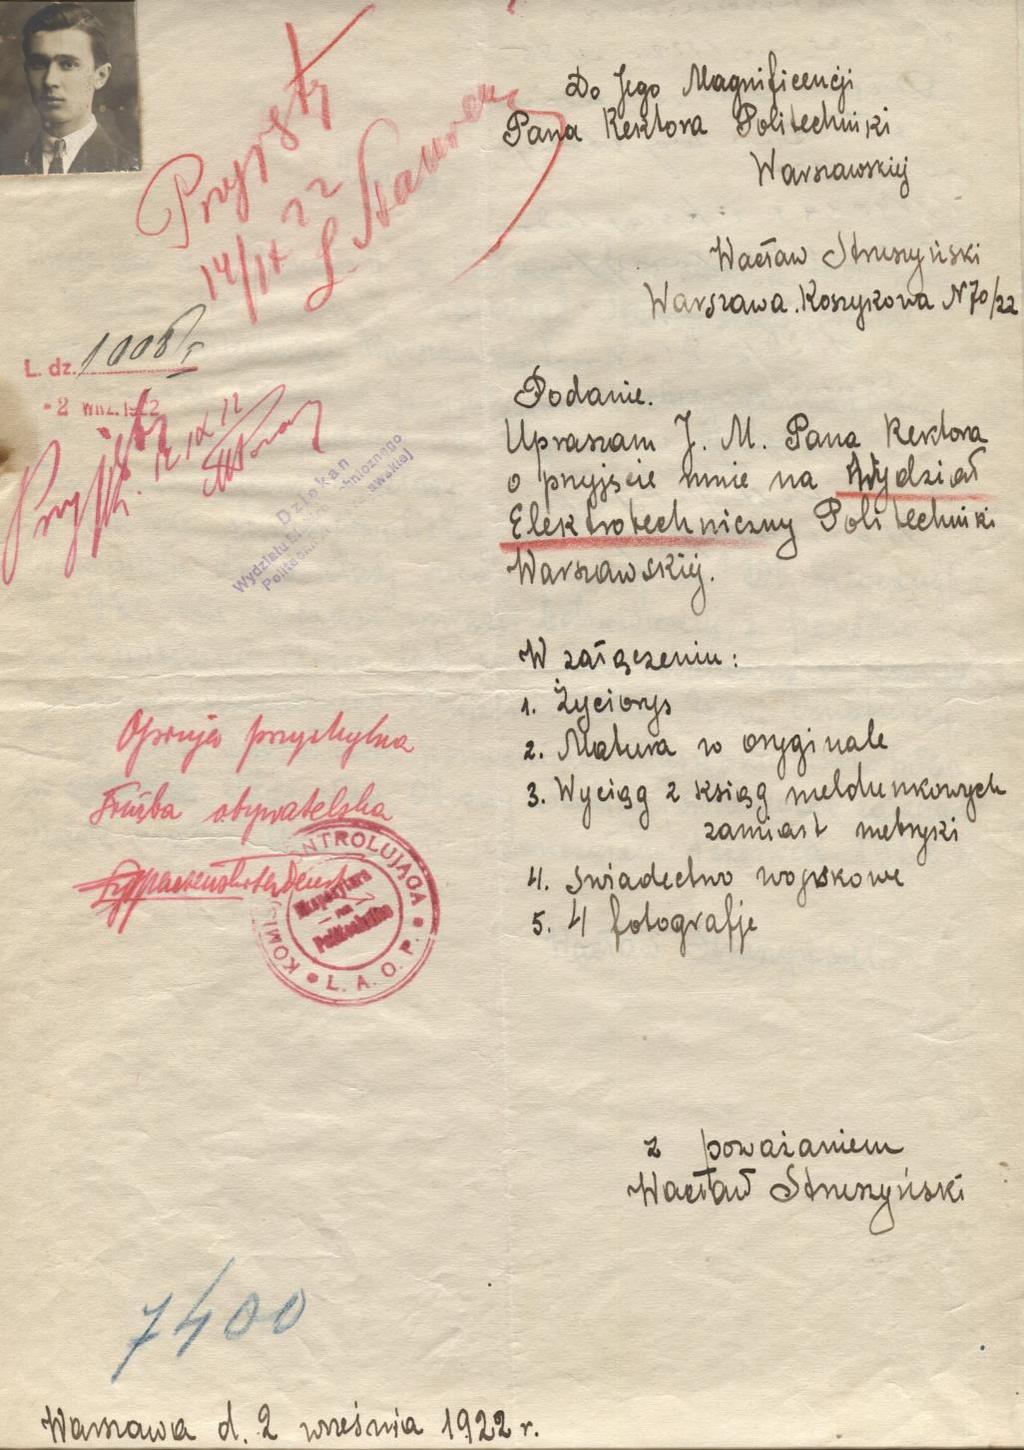 Do Jego Magnificencji
Pana Rektora Politechniki
Warszawskiej
Wacław Struszyński
Warszawa. Koszykowa N 70/22
L. dz. 1008
- 2 WRZ. 1922
Dziekan
Wydziału
Politechniki
Podanie.
Upraszam J. M. Pana Rektora
o przyjęcie mnie na Wydział
Elektrotechniczny Politechniki
Warszawskiej.
W załączeniu:
1. Życiorys
2. Matura w oryginale
3. Wyciąg z ksiąg meldunkowych
zamiast metryki
4. świadectwo wojskowe
5. 4 fotografje
Opinja przychylna
Służba obywatelska
KONTROLUJĄCA
Ekspozytura
na
Politechnice
L. A. O. P.
z poważaniem
Wacław Struszyński
7400
Warszawa d. 2 września 1922 r.